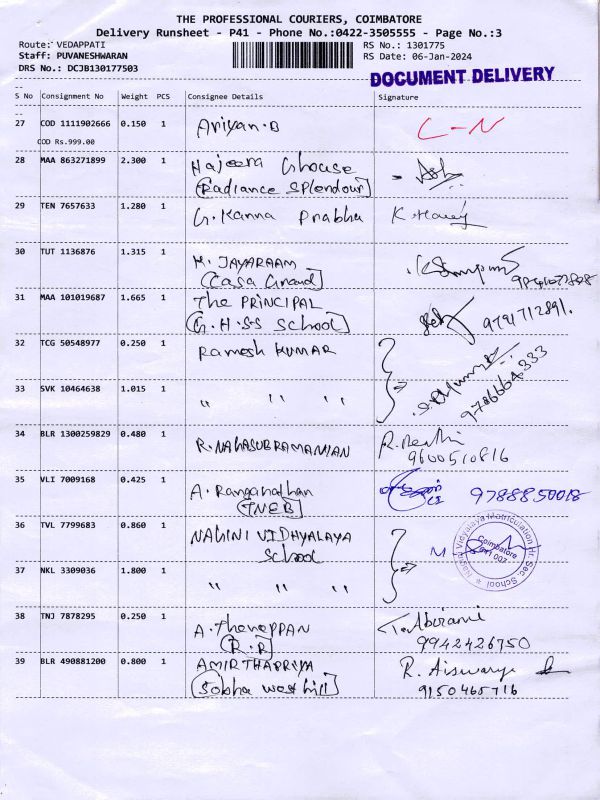 THE PROFESSIONAL COURIERS, COIMBATORE
Delivery Runsheet - P41 - Phone No.:0422-3505555 - Page No.:3
Route: VEDAPPATI RS No.: 1301775
Staff: PUVANESHWARAN RS Date: 06-Jan-2024
DRS No.: DCJB130177503
DOCUMENT DELIVERY
S No Consignment No Weight PCS Consignee Details Signature
27 COD 1111902666 0.150 1 Ariyan.B C-N
COD Rs.999.00
28 MAA 863271899 2.300 1 Hajeera Ghouse
(Radiance Splendour)
29 TEN 7657633 1.280 1 G. Kanna Prabhu
30 TUT 1136876 1.315 1 K. JAYARAAM
(Casa Grand)
31 MAA 101019687 1.665 1 The PRINCIPAL
(G.H.SS School) 9791712891.
32 TCG 50548977 0.250 1 Ramesh KUMAR
9786664333
33 SVK 10464638 1.015 1 " " "
34 BLR 1300259829 0.480 1 R. NAGASUBRAMANIAN R.
9600510816
35 VLI 7009168 0.425 1 A. Ranganathan 9788850018
(TNEB)
36 TVL 7799683 0.860 1 NAGINI VIDHYALAYA
School
Nagini Vidyalaya Matriculation Hr. Sec. School
Coimbatore
641 007
37 NKL 3309036 1.800 1 " " "
38 TNJ 7878295 0.250 1 A. Thenappan T. Abirami
(R.R) 9942426750
39 BLR 490881200 0.800 1 AMIRTHAPRIYA R. Aiswarya
(Sobha west hill) 9150465716